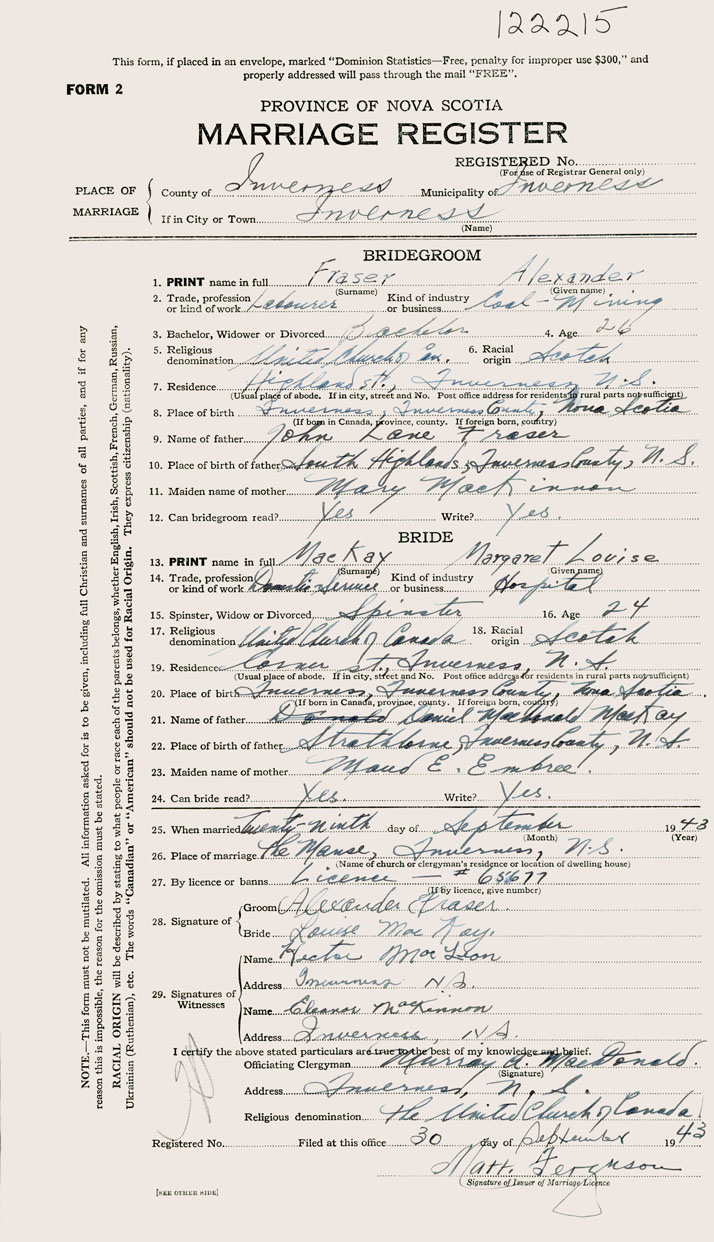 122215
This form, if placed in an envelope, marked "Dominion Statistics—Free, penalty for improper use $300," and
properly addressed will pass through the mail "FREE".
FORM 2
PROVINCE OF NOVA SCOTIA
MARRIAGE REGISTER
REGISTERED No.
(For use of Registrar General only)
PLACE OF MARRIAGE
County of Inverness Municipality of Inverness
If in City or Town Inverness
(Name)
BRIDEGROOM
1. PRINT name in full Fraser Alexander
(Surname) (Given name)
2. Trade, profession or kind of work Labourer Kind of industry or business Coal-Mining
3. Bachelor, Widower or Divorced Bachelor 4. Age 26
5. Religious denomination United Church of Can. 6. Racial origin Scotch
7. Residence Highland St., Inverness, N.S.
(Usual place of abode. If in city, street and No. Post office address for residents in rural parts not sufficient)
8. Place of birth Inverness, Inverness County, Nova Scotia
(If born in Canada, province, county. If foreign born, country)
9. Name of father John Lane Fraser
10. Place of birth of father South Highlands, Inverness County, N.S.
11. Maiden name of mother Mary MacKinnon
12. Can bridegroom read? Yes Write? Yes.
BRIDE
13. PRINT name in full MacKay Margaret Louise
(Surname) (Given name)
14. Trade, profession or kind of work Domestic Service Kind of industry or business Hospital
15. Spinster, Widow or Divorced Spinster 16. Age 24
17. Religious denomination United Church of Canada 18. Racial origin Scotch
19. Residence Corner St., Inverness, N.S.
(Usual place of abode. If in city, street and No. Post office address for residents in rural parts not sufficient)
20. Place of birth Inverness, Inverness County, Nova Scotia.
(If born in Canada, province, county. If foreign born, country)
21. Name of father Donald Daniel MacDonald MacKay
22. Place of birth of father Strathlorne, Inverness County, N.S.
23. Maiden name of mother Maud E. Embree.
24. Can bride read? Yes. Write? Yes.
25. When married Twenty-ninth day of September 1943
(Month) (Year)
26. Place of marriage The Manse, Inverness, N.S.
(Name of church or clergyman's residence or location of dwelling house)
27. By licence or banns Licence — # 65677
(If by licence, give number)
28. Signature of
Groom Alexander Fraser
Bride Louise MacKay.
29. Signatures of Witnesses
Name Hector MacLean
Address Inverness N.S.
Name Eleanor MacKinnon
Address Inverness, N.S.
I certify the above stated particulars are true to the best of my knowledge and belief.
Officiating Clergyman Murray A. MacDonald.
(Signature)
Address Inverness, N.S.
Religious denomination The United Church of Canada
Registered No. Filed at this office 30 day of September 1943
Matt. Ferguson
Signature of Issuer of Marriage Licence
[SEE OTHER SIDE]
NOTE.—This form must not be mutilated. All information asked for is to be given, including full Christian and surnames of all parties, and if for any
reason this is impossible, the reason for the omission must be stated.
RACIAL ORIGIN will be described by stating to what people or race each of the parents belongs, whether English, Irish, Scottish, French, German, Russian,
Ukrainian (Ruthenian), etc. The words "Canadian" or "American" should not be used for Racial Origin. They express citizenship (nationality).